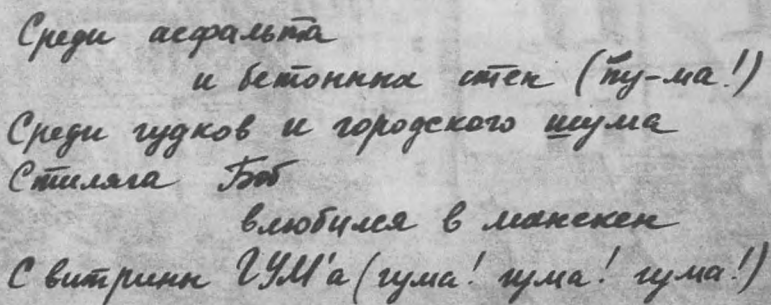 Среди асфальта
и бетонных стен (пу-ма!)
Среди гудков и городского шума
Стиляга Боб
влюбился в манекен
С витрины ГУМ'а (гума! гума! гума!)